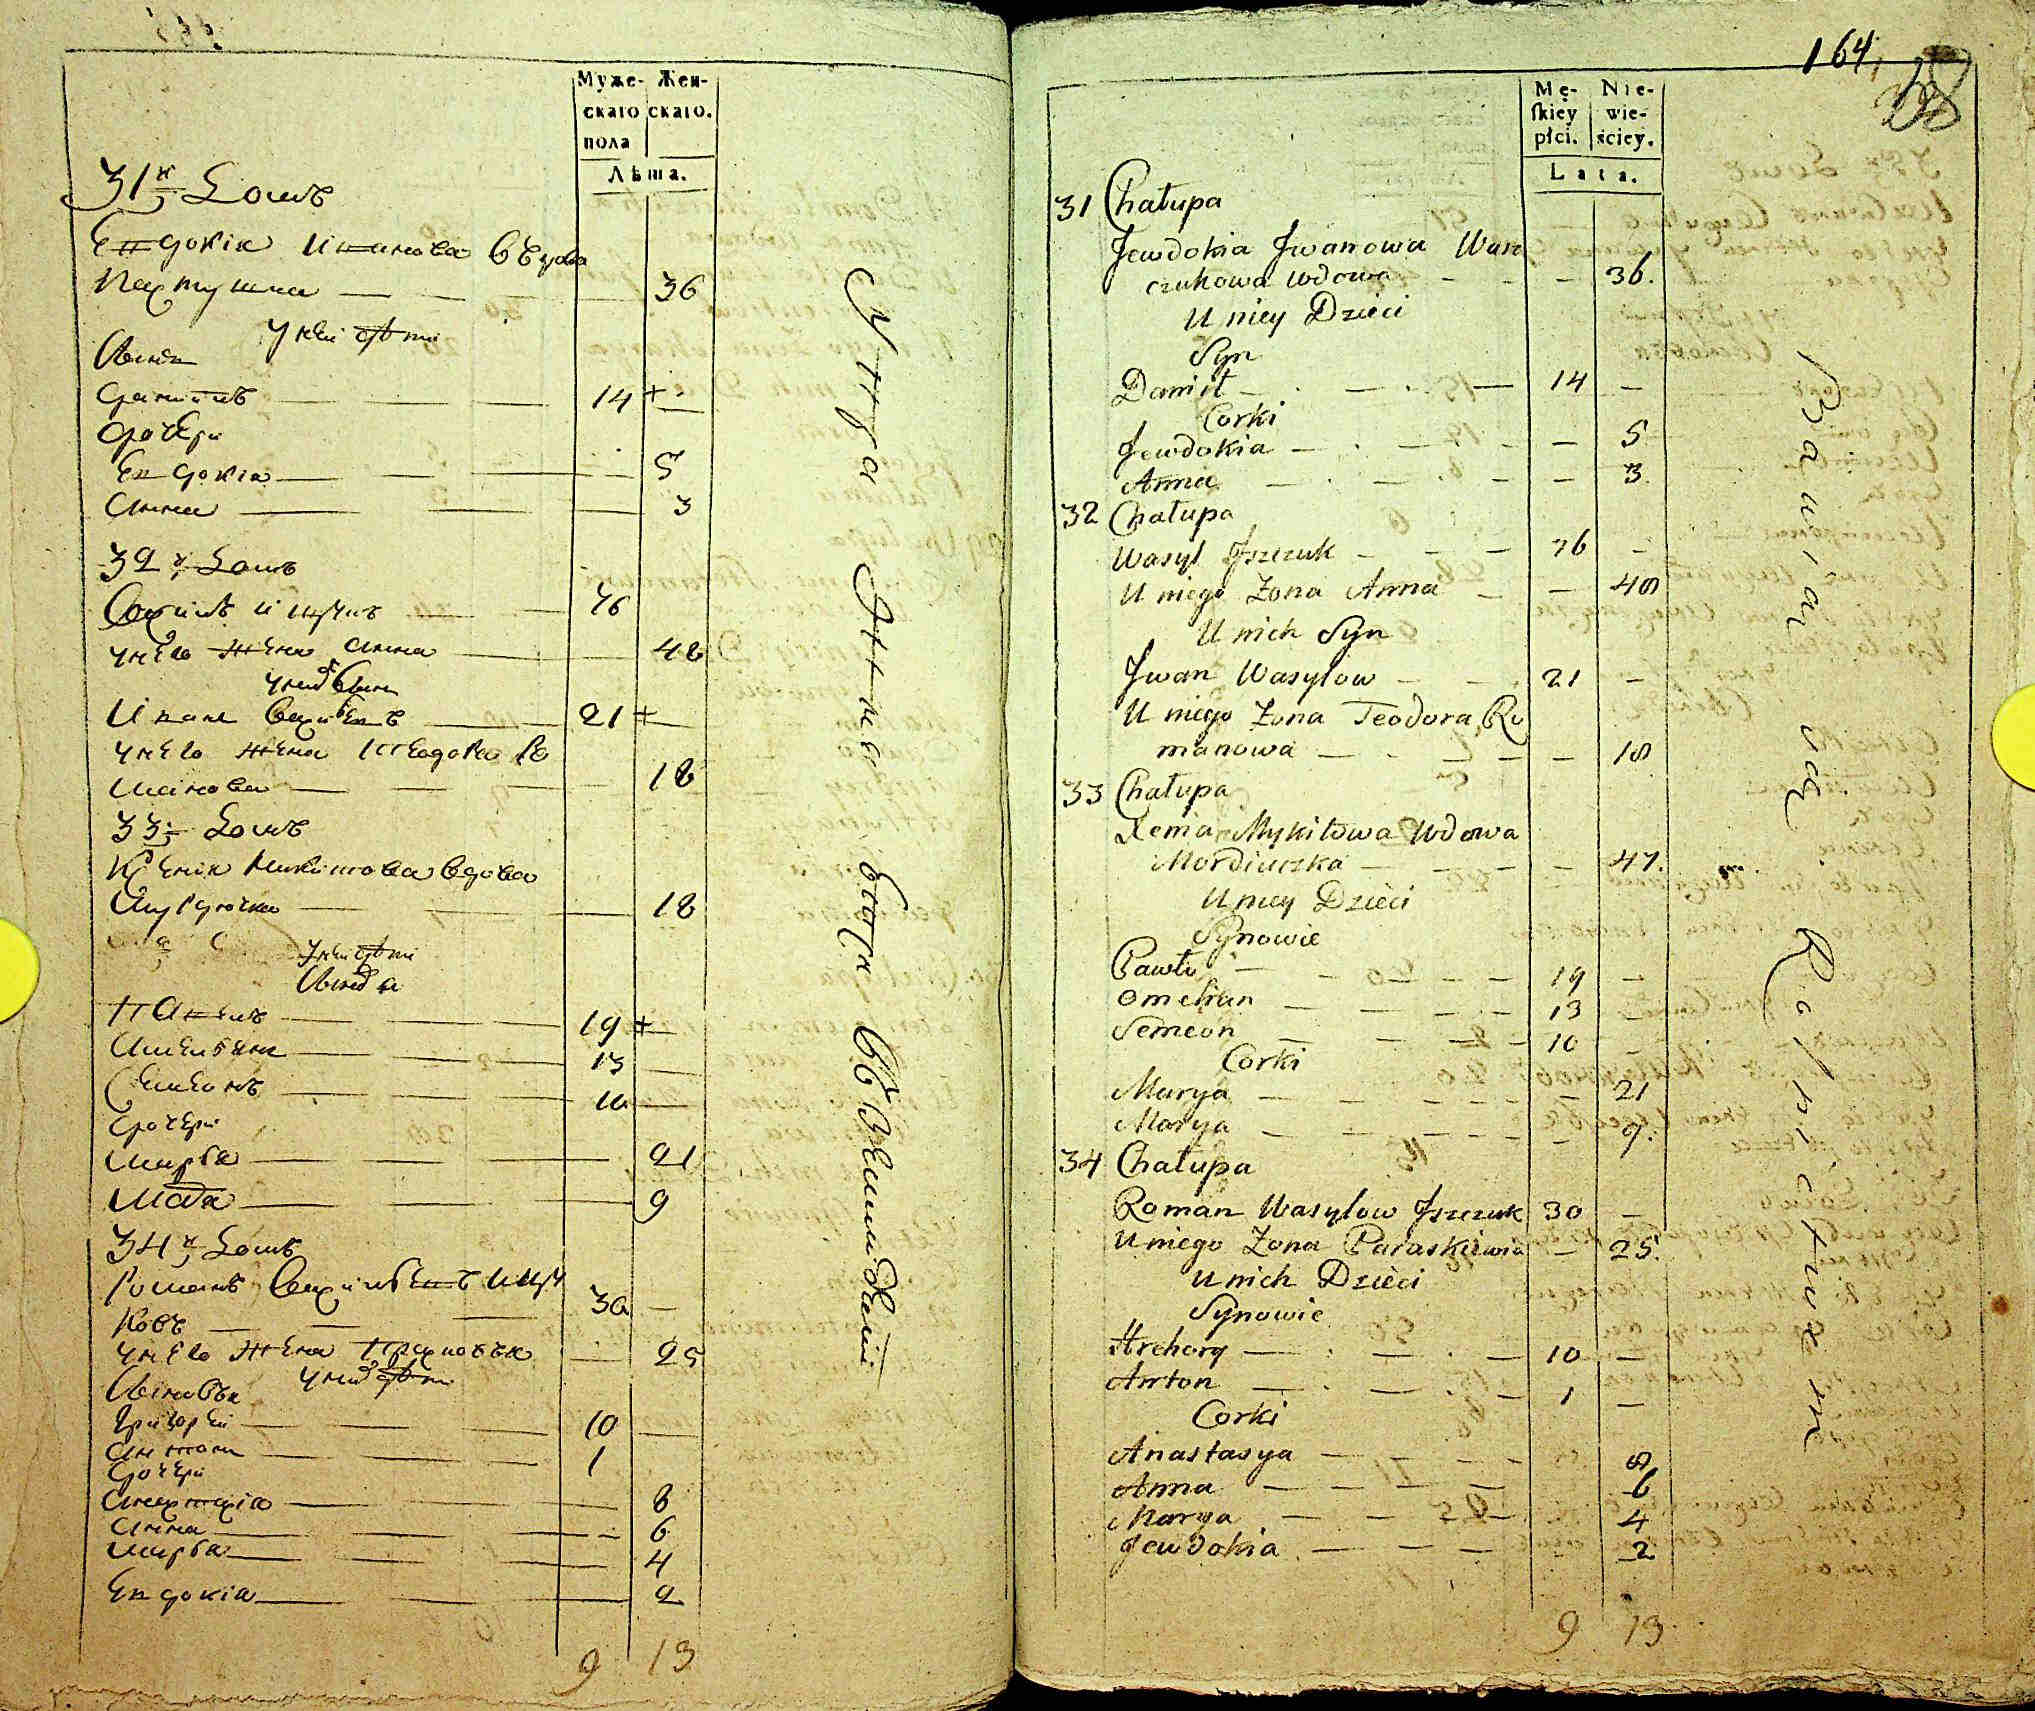 Муже-
скаго
пола
Жен-
скаго.
Лѣта.
31й Домъ
Евдокія Иванова вдова
36
У ней дѣти
Сынъ
Данило 14
дочери
Евдокія 5
Анна 3
32й Домъ
76
У него жена Анна 48
У нихъ Сынъ
Иванъ Василіевъ 21
У него жена Феодора Ро
манова 18
33й Домъ
Ксенія Микитова вдова
У ней дѣти
Павелъ 19
Емельянъ 13
Семенъ 10
дочери
Марья 21
9
34й Домъ
Романъ Василіевъ Ищу
ковъ 30
У него жена 25
У нихъ дѣти
Сыновья
Григорей 10
Антонъ 1
дочери
Анастасія 8
Анна 6
Марья 4
Евдокія 2
9 13
164
Mę-
skiey
płci.
Nie-
wie-
ściey.
Lata.
31 Chałupa
Jewdokia Jwanowa Wasz
czukowa wdowa 36.
U niey Dzieci
Syn
Danił 14 —
Corki
Jewdokia — 5
Anna — 3
32 Chałupa
Wasyl Jszczuk 76 —
U niego Zona Anna — 48
U nich Syn
Jwan Wasylow 21 —
U niego Zona Teodora Ro
manowa — 18
33 Chałupa
Xenia Mykitowa Wdowa
Mordiuczka — 47.
U niey Dzieci
Synowie
Pawło 19 —
Omelian 13 —
Semeon 10 —
Corki
Marya — 21
Marya — 9.
34 Chałupa
Roman Wasylow Jszczuk 30 —
U niego Zona Paraskiewia — 25.
U nich Dzieci
Synowie
Hrehory 10 —
Anton 1 —
Corki
Anastasya 8
Anna 6
Marya 4
Jewdokia 2
9 13